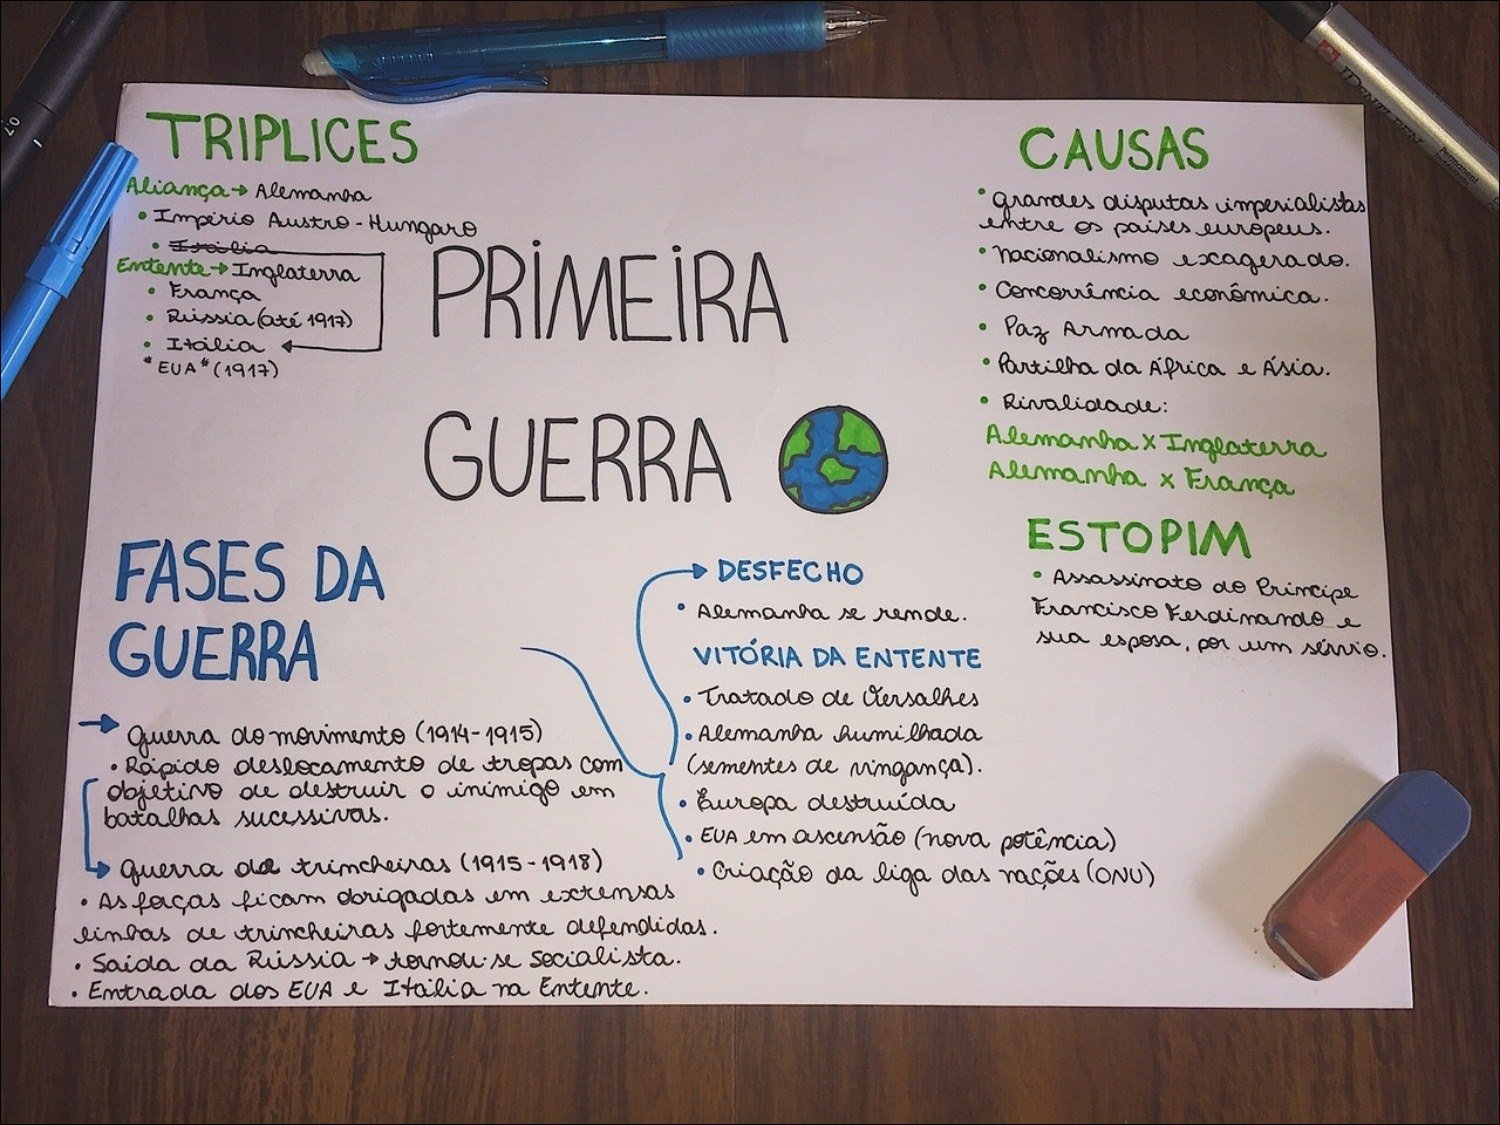 TRIPLICES
Aliança → Alemanha
• Império Austro-Hungaro
• Itália
Entente → Inglaterra
• França
• Rússia (até 1917)
• Itália
"EUA" (1917)
PRIMEIRA
GUERRA
CAUSAS
• Grandes disputas imperialistas
entre os países europeus.
• Nacionalismo exagerado.
• Concorrência econômica.
• Paz Armada
• Partilha da África e Ásia.
• Rivalidade:
Alemanha X Inglaterra
Alemanha X França
ESTOPIM
• Assassinato do Príncipe
Francisco Ferdinando e
sua esposa, por um sérvio.
FASES DA
GUERRA
→ Guerra do movimento (1914-1915)
• Rápido deslocamento de tropas com
objetivo de destruir o inimigo em
batalhas sucessivas.
Guerra de trincheiras (1915-1918)
• As forças ficam obrigadas em extensas
linhas de trincheiras fortemente defendidas.
• Saída da Rússia → tornou-se Socialista.
• Entrada dos EUA e Itália na Entente.
DESFECHO
• Alemanha se rende.
VITÓRIA DA ENTENTE
• Tratado de Versalhes
• Alemanha humilhada
(sementes de vingança).
• Europa destruída
• EUA em ascensão (nova potência)
• Criação da liga das nações (ONU)
0.7
Permanent